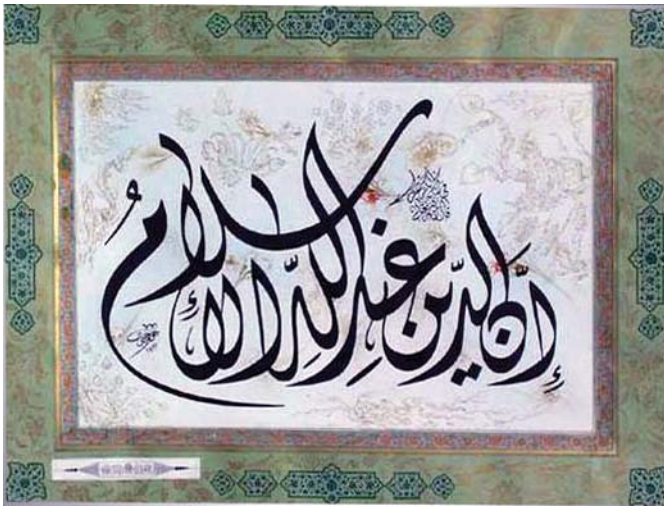 إِنَّ الدِّينَ عِنْدَ اللهِ الإِسْلَامُ